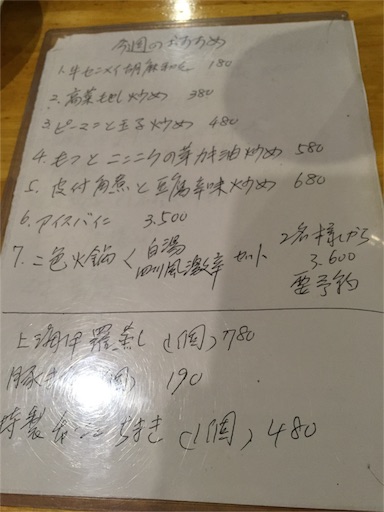 今週のおすすめ
1. 牛センマイ胡麻和え 180
2. 高菜もやし炒め 380
3. ピーマンと玉子炒め 480
4. モツとニンニクの芽カキ油炒め 580
5. 皮付角煮と豆腐辛味炒め 680
6. アイスバイン 3.500
7. 二色火鍋 < 白湯 四川風激辛 セット 2名様から 3.600 要予約
上海 蒸し (1個) 780
豚 個) 190
特製 ちまき (1個) 480